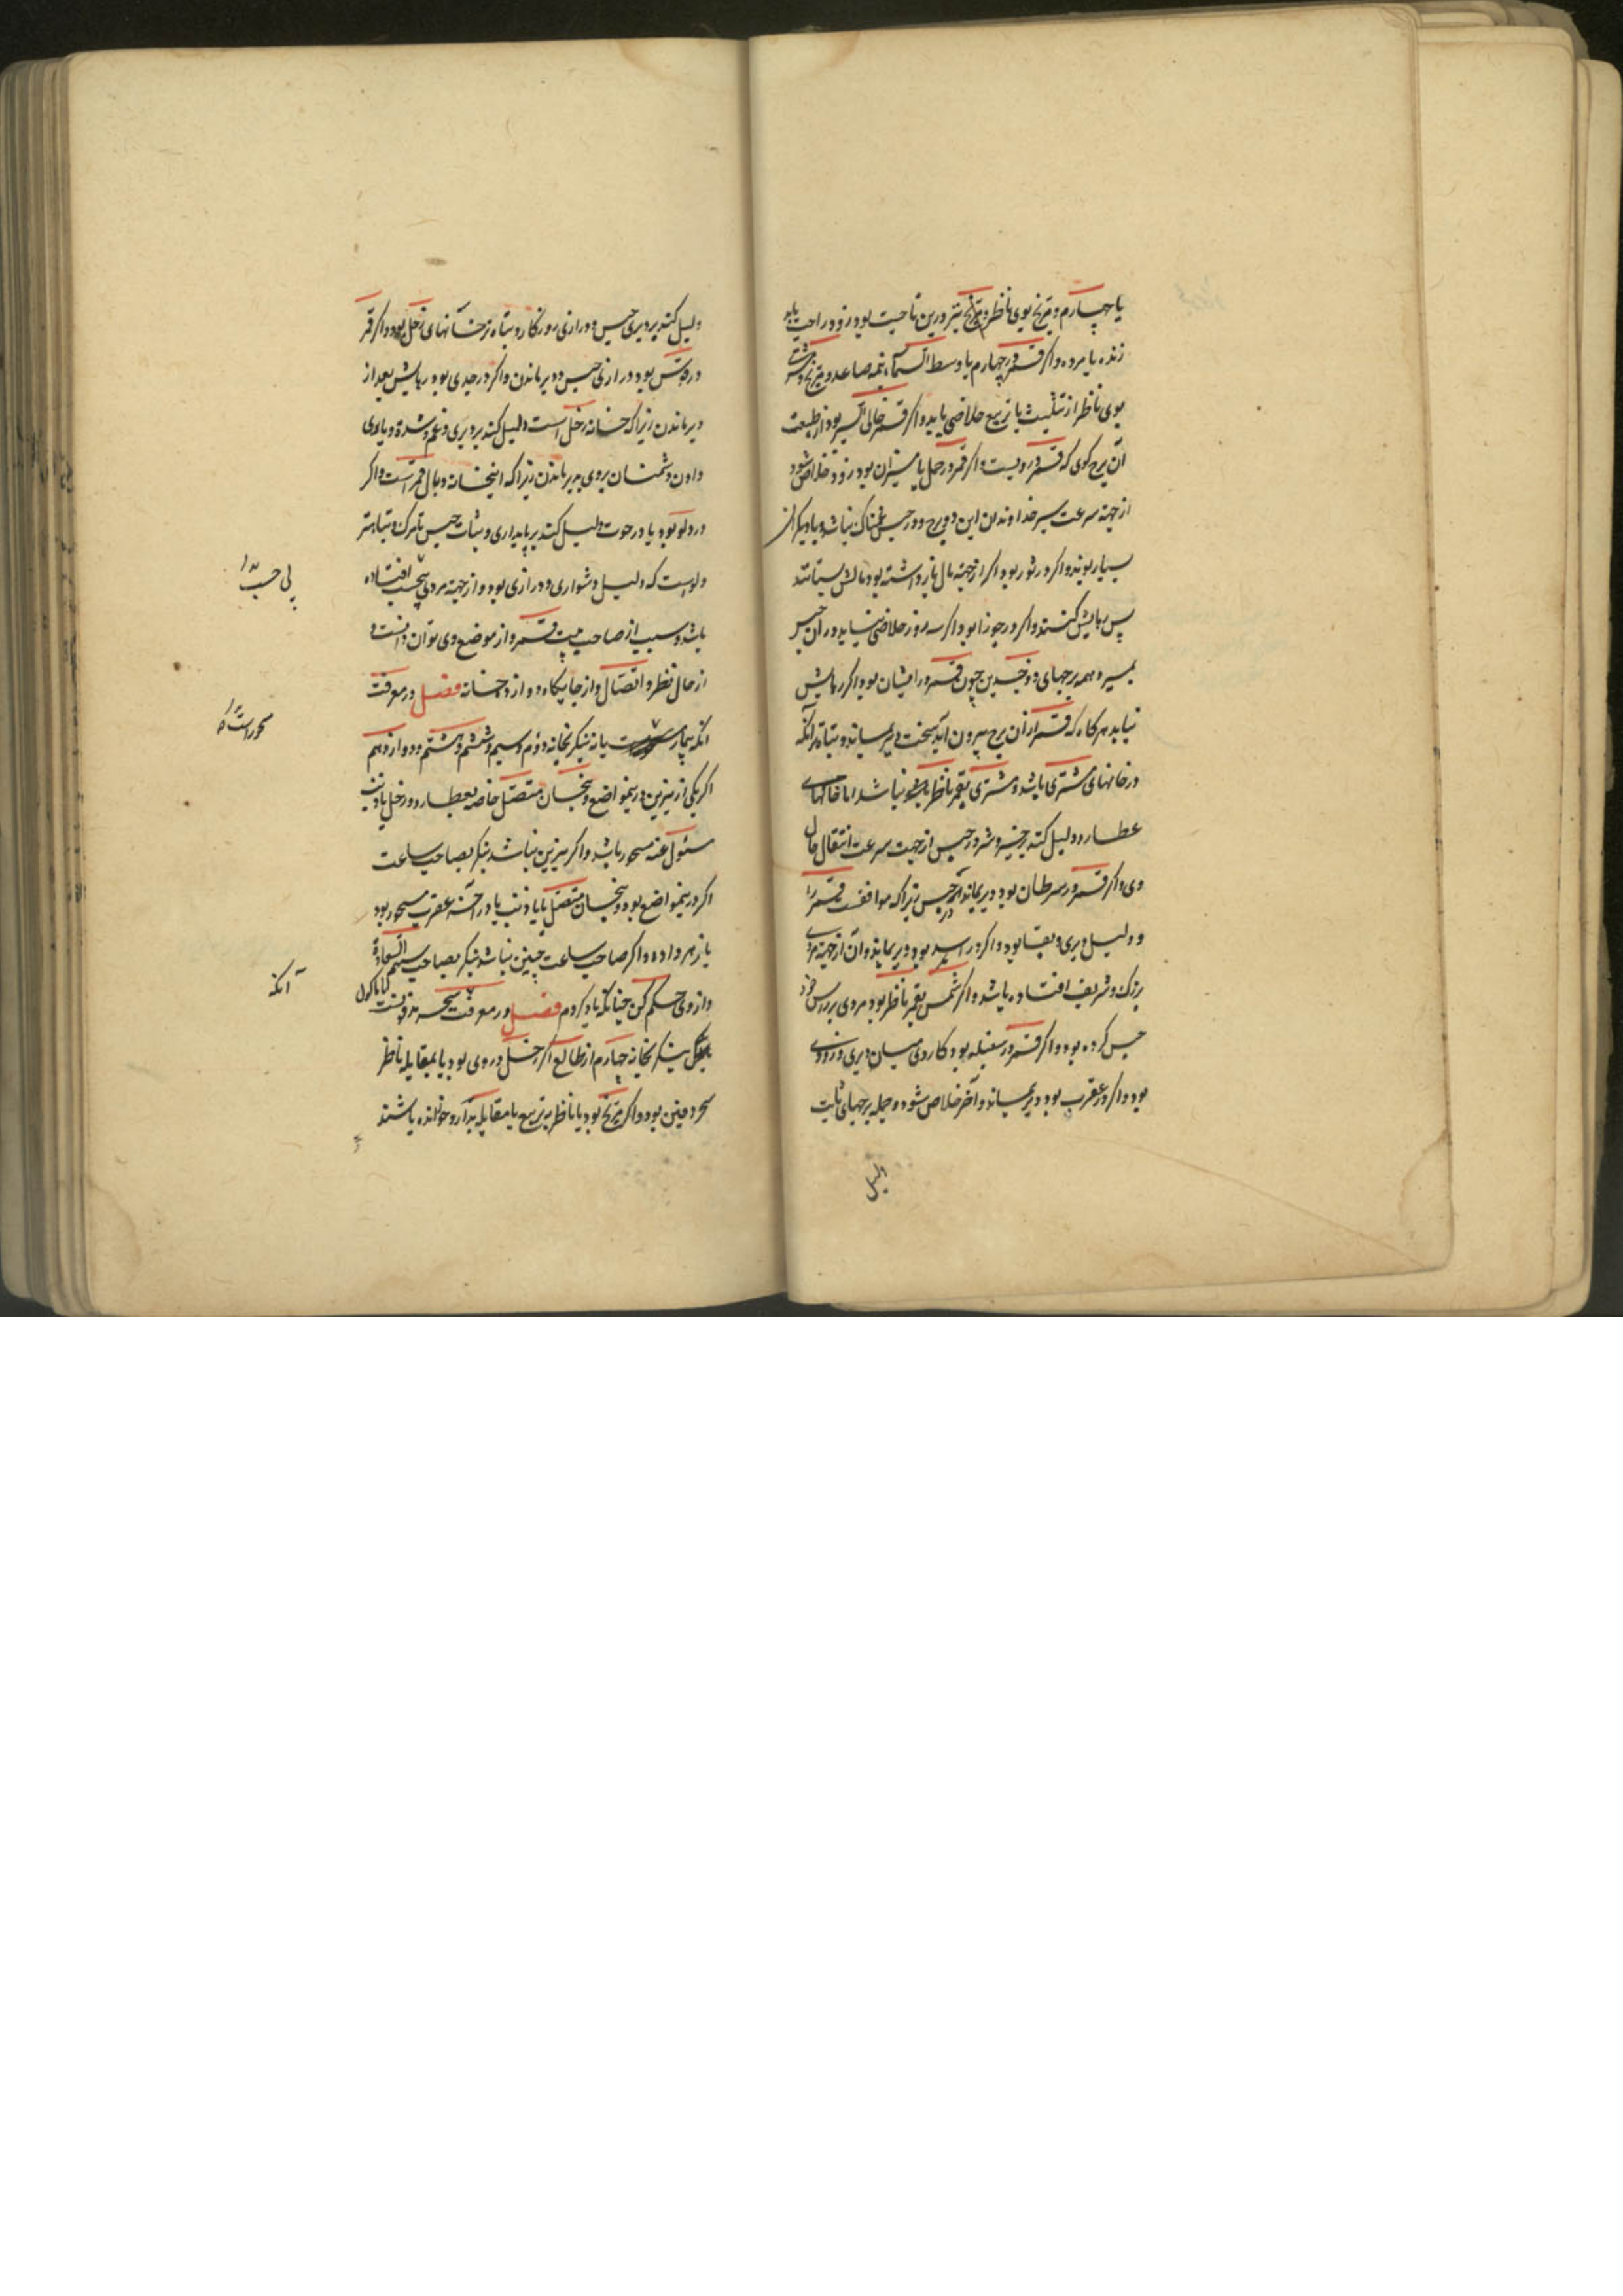 یا چهارم و مریخ بوی ناظر و مریخ نیز درین ناحیت بود زود راحت یابد
زنده یا مرده و اگر قمر در چهارم یا وسط السماء نیمه صاعد و مریخ و مشتری
بوی ناظر از تثلیث یا تربیع خلاصی یابد و اگر قمر خالی السیر بود از طبیعت
آن برج کوی که قمر درویست و اگر قمر در حمل یا میزان بود زود خلاص شود
از جهته سرعت سیر خداوندان این دو برج و در حبس غمناک نباشد و با دیگران
بسیار بوند و اگر در ثور بود اگر از جهته مال باز داشته بود مالش بستانند
پس رهایش کنند و اگر در جوزا بود اگر سه روز خلاصی نیابد در آن حبس
بمیرد همه برجهای ذو جسدین چون قمر در ایشان بود اگر رهایش
نیابد هر کاه که قمر از آن برج بیرون آید سخت دیر بماند و تباه تر آنکه
در خانهای مشتری باشد و مشتری بقمر ناظر نباشد اما خانهای
عطارد دلیل کند بر خیر و شر در حبس از جهت سرعت انتقال حال
وی و اگر قمر در سرطان بود دیر بماند در حبس زیرا که موافقست قمر را
و دلیل دیری و بقا بود و اگر در اسد بود دیر بماند و آن از جهته مردی
بزرک و شریف افتاده باشد و اگر شمس بقمر ناظر بود مردی بزرگش خود
حبس کرده بود و اگر قمر در سنبله بود کار وی میان دیری و زودی
بود و اگر در عقرب بود دیر بماند و آخر خلاص شود و جمله برجهای ثابت
دلیل
دلیل کند بر دیری حبس و درازی روزکار و تباه تر خانهای زحل بود و اگر قمر
در قوس بود درازی حبس و دیر ماندن و اگر در جدی بود رهایش بعد از
دیر ماندن زیرا که خانه زحل است دلیل کند بر دیری و غم و شدة و یاوری
دادن دشمنان بروی به دیر ماندن زیرا که اینخانه وبال قمر است و اگر
در دلو بود یا در حوت دلیل کند بر پایداری و ثبات حبس تا مرک و تباه تر
دلوست که دلیل دشواری و درازی بود و از جهته مردی افتاده
باشد و سبب از صاحب بیت قمر و از موضع وی توان دانست و
از حال نظر و اتصال و از جایکاه دوازده خانه فصل در معرفت
آنکه بیمار یا نه بنکر بخانه دوم و سیم و ششم و هشتم و دوازدهم
اگر یکی از نیرین درینمواضع و بنحسان متصل خاصه بعطارد و زحل یا ذنب
مسئول عنه مسحور باشد و اگر نیرین نباشد بنکر بصاحب ساعت
اگر درینمواضع بود و بنحسان متصل یا با ذنب یا در آخر عقرب مسحور بود
یا زهر داده و اگر صاحب ساعت چنین نباشد بنکر بصاحب سهم السعادة
و از وی حکم کن چنانکه یاد کردم فصل در معرفت سحر مدفونست
بنکر بخانه چهارم از طالع اگر زحل در وی بود یا بمقابله ناظر
سحر دفین بود و اگر مریخ بود یا ناظر به تربیع یا مقابله خوانده باشند
آنکه